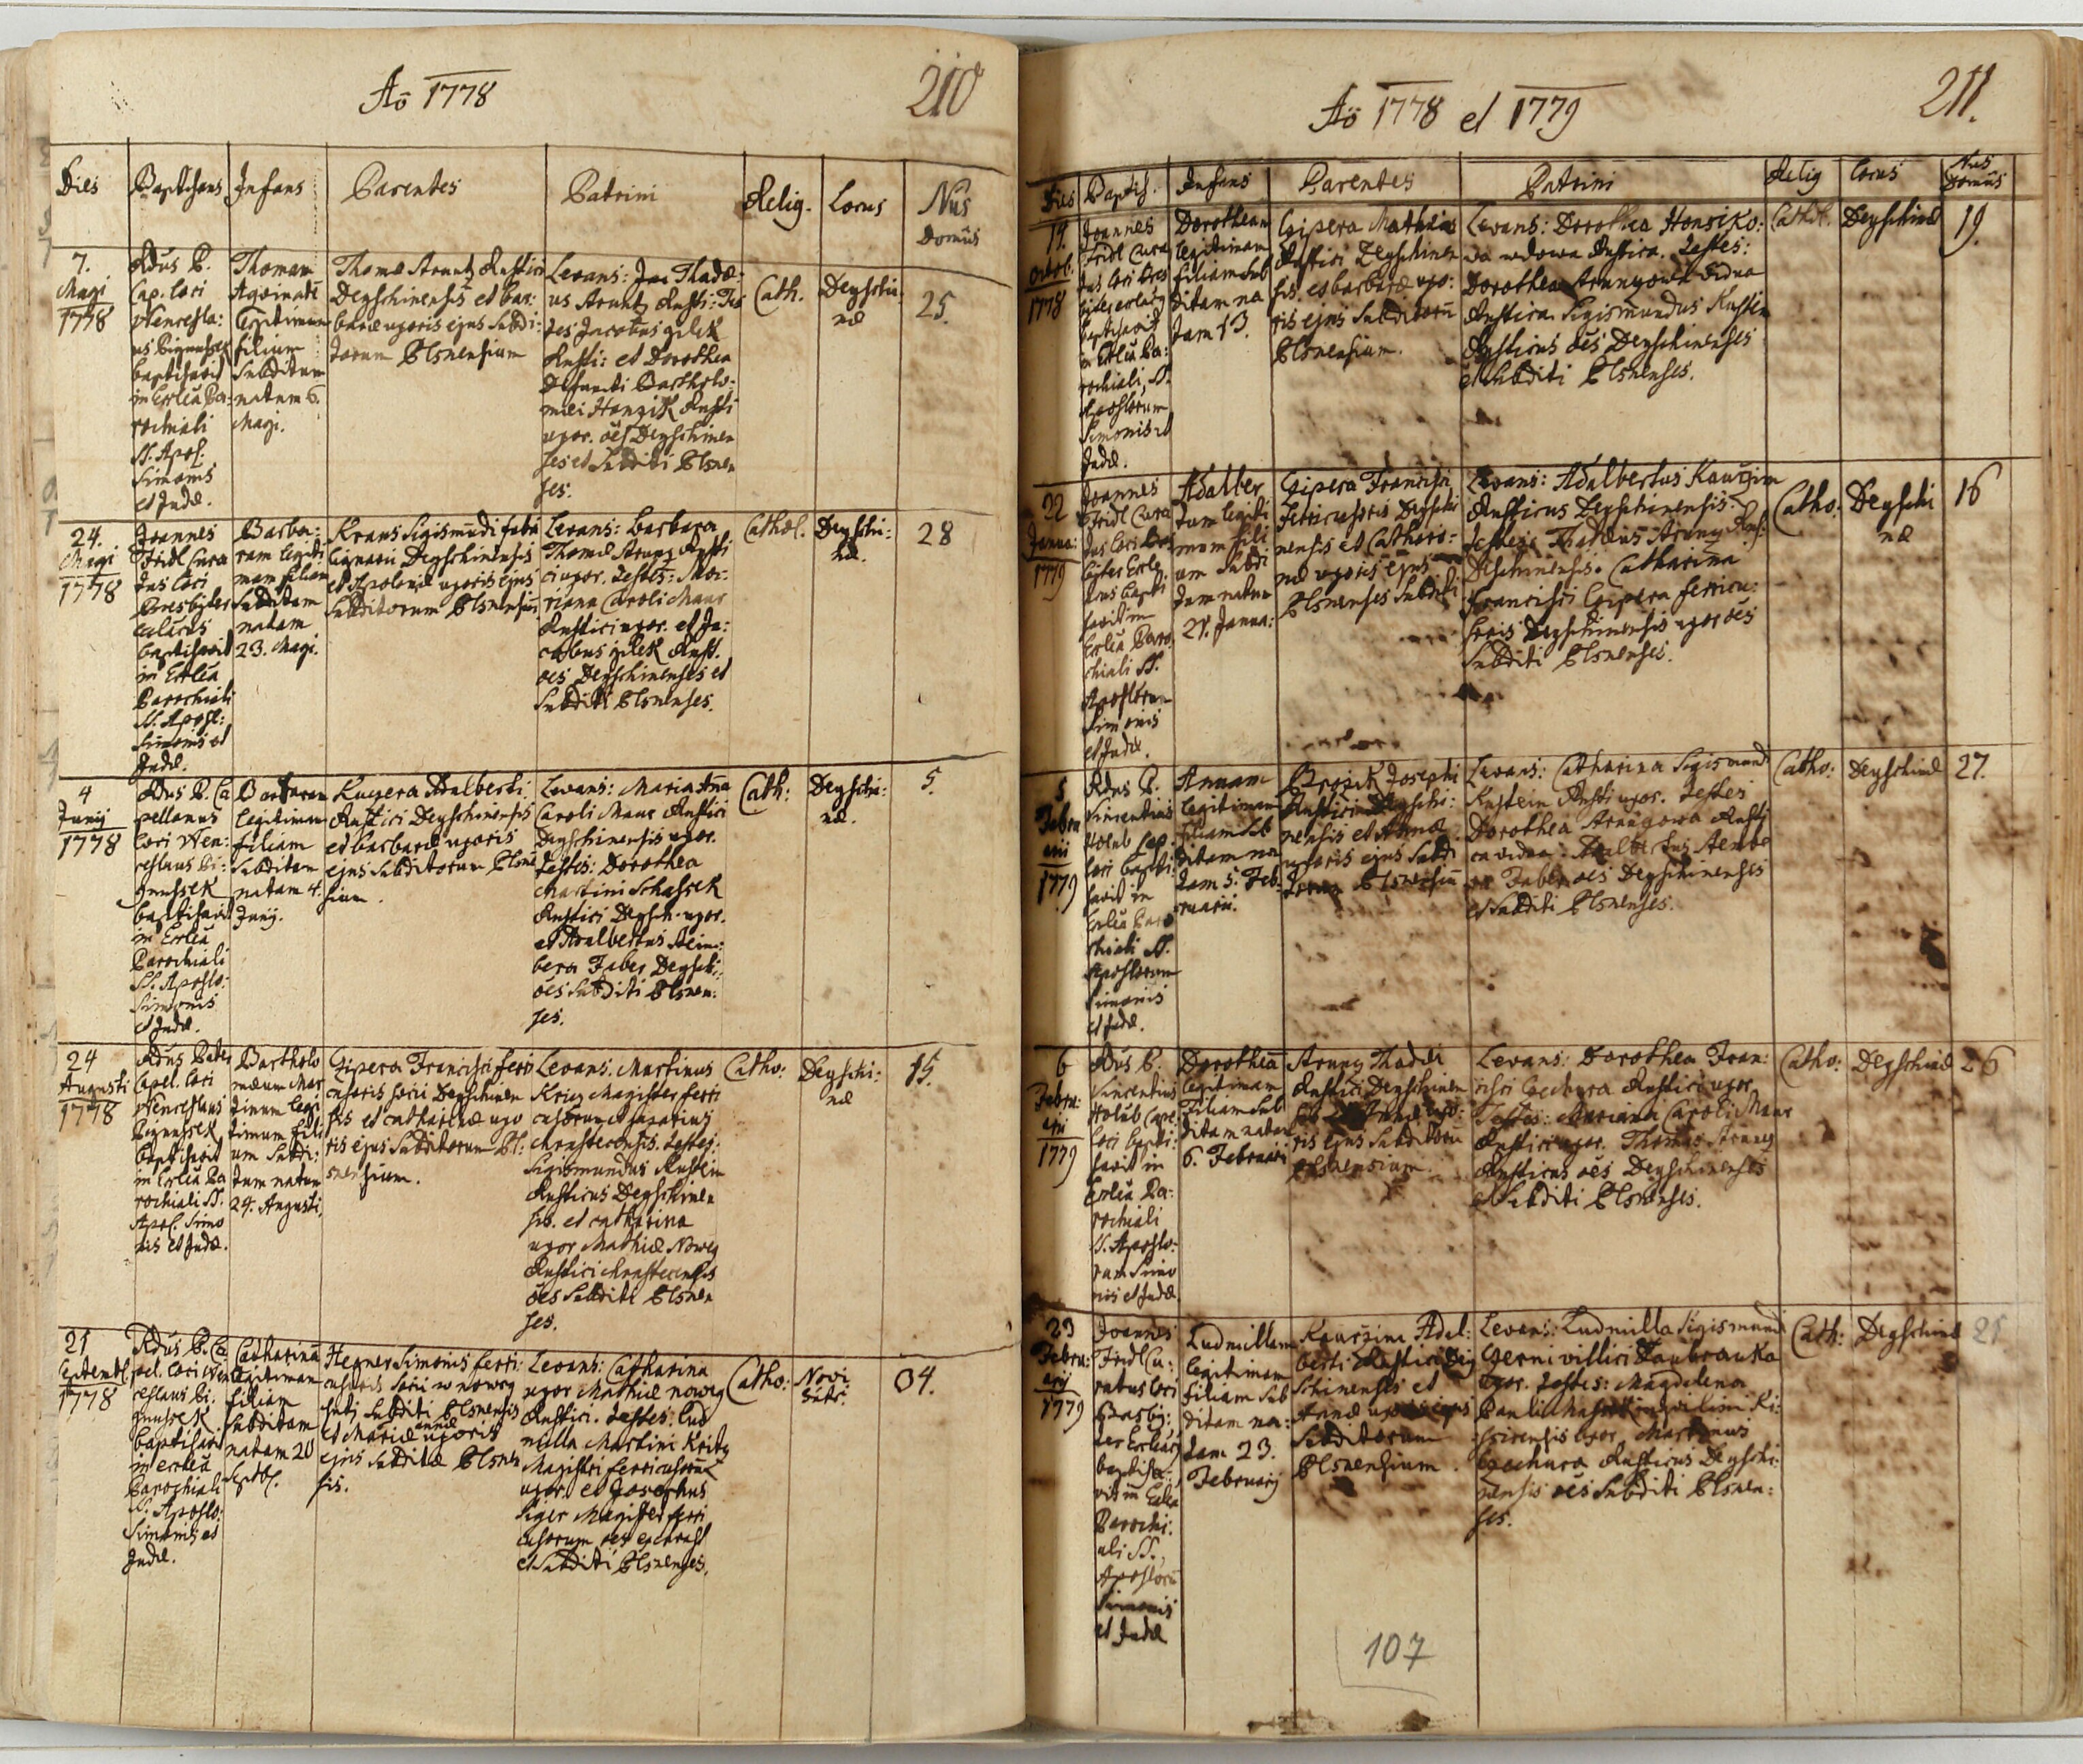 Aō 1778
210
Dies Baptisans Infans Parentes Patrini Relig. Locus Nūs Domūs
7.
Maji
1778
Rdus P.
Cap. loci
Wencesla:
us Pignussek
baptisavit
in Ecclia Pa:
rochiali
SS. Apos:
Simonis
et Judæ.
Thomam
Aqvinatē
legitimum
filium
Subditum
natum 6.
Maji.
Thomæ Strunz Rustici
Deyschinensis et Bar:
baræ uxoris ejus Subdi:
torum Plsnensium
Levans: Thadæ:
us Strunz Rusti: Tes
tes Jacobus Jilek
Rusti: et Dorothea
Defuncti Bartholo:
mæi Hanzik Rusti
uxor. oēs Deyschinen
ses et Subditi Plsnen
ses.
Cath.
Deyschi:
næ
25.
24.
Maji
1778
Joannes
Fridl Cura
tus loci
Presbyter
baptisavit
in Ecclia
Parochiali
SS. Apost:
Simonis et
Judæ.
Barba:
ram legiti
mam filiam
Subditam
natam
23. Maji.
Kraus Sigismūdi fabri
lignarii Deyschinensis
et Apoloniæ uxoris ejus
Subditorum Plsnensiū
Levans: Barbara
Thomæ Strunz Rusti
ci uxor. Testes: Mar:
riana Caroli Maur
Rustici uxor. et Ja:
cobus Jilek Rust.
oes Deyschinenses et
Subditi Plsnenses.
Cathol.
Deyschi:
næ.
28
4
Junij
1778
Rdus P. Ca
pellanus
loci Wen:
ceslaus Pi:
gnussek
baptisavit
in Ecclia
Parochiali
SS. Aposto:
Simonis
et Judæ.
Barbaram
legitimam
filiam
Subditam
natam 4.
Junij.
Kucera Adalberti
Rustici Deyschinensis
et barbaræ uxoris
ejus Subditorum Plsne
sium.
Levans: Maria Aña
Caroli Maur Rustici
Deyschinensis uxor.
Testes: Dorothea
Martini Schassek
Rustici Deysch. uxor.
et Adalbertus Stein:
bera Faber Deyschi:
oēs Subditi Plsnen:
ses.
Cath:
Deyschi:
næ.
5.
24
Augusti
1778
Rdus Pater
Capel. loci
Wenceslaus
Pignussek
baptisavit
in Ecclia Pa
rochiali SS.
Apos. Simo
nis et Judæ.
Bartholo
mæum Mar
tinum legi
timum fili
um Subdi:
tum natum
24. Augusti.
Czipera Francisci ferri
cusoris socii Deyschinen
sis et Catharinæ uxo
ris ejus Subditorum Pl:
snensium.
Levans: Martinus
Kriz Magister ferri
cusorum
Chrastecensis. Testes:
Sigismundus Rustein
Rusticus Deyschinen
sis. et Catharina
uxor Mathiæ Nowey
Rustici Chrastecensis
oēs Subditi Plsnen
ses.
Catho:
Deyschi:
næ
15.
21
Septembl.
1778
Rdus P. Ca
pel. loci Wen
ceslaus Pi:
gnussek
baptisavit
in Ecclia
Parochiali
SS. Aposto:
Simonis et
Judæ.
Catharinā
legitimam
filiam
Subditam
natam 20
Septbl.
Hegner Simonis ferri:
cusoris socii w nowey
huti Subditi Plsnensis
et Mariæ annæ uxoris
ejus Subditæ Plsnen
sis.
Levans: Catharina
uxor Mathiæ nowey
Rustici. Testes: Lud
milla Martini Kritz
Magistri ferricusorū
uxor. et Josephus
Siger Magister ferri
cusorum
et Subditi Plsnenses.
Catho:
Novi
34.
Aō 1778 et 1779
211.
Dies Baptis. Infans Parentes Patrini Relig Locus Nus Domūs
19.
Octob.
1778
Joannes
Fridl Cura
tus loci Pres
byter
baptisavit
in Ecclia Pa:
rochiali SS.
Apostolorum
Simonis et
Judæ.
Dorotheam
legitimam
filiam Sub
ditam na
tam 13.
Czipera Mathiæ
Rustici Deyschinen
sis. et barbaræ uxo:
ris ejus Subditorū
Plsnensium.
Levans: Dorothea Honsiko:
wa wdowa Rustica. Testes:
Dorothea Strunzowa Vidua
Rustica. Sigismundus Rustein
Rusticus oēs Deyschinenses
et Subditi Plsnenses.
Cathol.
Deyschinæ
19.
22
Janua:
1779
Joannes
Fridl Cura
tus loci Pres
byter Eccle.
baptisavit in
Ecclia Paro
chiali SS.
Apostolorum
Simonis
et Judæ.
Adalber
tum legiti
mum fili
um Subdi
tum natum
21. Janua:
Czipera Francisci
ferricusoris Deyschi
nensis et Cathari:
næ uxoris ejus
Plsnenses Subditi
Levans: Adalbertus Kaurzim
Rusticus Deyschinensis.
Testes: Thadæus Strunz Rus:
Deschinensis. Catharina
Francisci Czipera ferricu:
soris Deyschinensis uxor oēs
Subditi Plsnenses.
Catho:
Deyschi
næ
16
5
Febru
arii
1779
Rdus P.
Vincentius
Holub Cap.
loci bapti:
savit in
Ecclia Paro
chiali SS.
Apostolorum
Simonis
et Judæ.
Annam
legitimam
filiam Sub
ditam na
tam 5. Feb:
ruarii.
Brozik Josephi
Rustici Deyschi:
nensis et Annæ
uxoris ejus Subdi
torum Plsnensiū
Levans: Catharina Sigismundi
Rustein Rusti uxor. Testes
Dorothea Strunzowa Rusti
ca vidua. Adalbertus Stembe
ra Faber oēs Deyschinenses
et Subditi Plsnenses.
Catho:
Deyschinæ
27.
6
Febru:
arii
1779
Rdus P.
Vincentius
Holub Cape.
loci bapti:
savit in
Ecclia Pa:
rochiali
SS. Aposto:
rum Simo
nis et Judæ.
Dorotheā
legitimam
Filiam Sub
ditam natam
6. Februarii
Strunz Thadæi
Rustici Deyschinen
sis et Annæ uxo:
ris ejus Subditorū
Plsnensium.
Levans: Dorothea Fran:
cisci Czechura Rustici uxor.
Testes: Mariana Caroli Maur
Rustici uxor. Thomas Strunz
Rusticus oēs Deyschinenses
et Subditi Plsnenses.
Catho:
Deyschinæ
26
23
Febru:
arij
1779
Joannes
Fridl Cu:
ratus loci
Presby:
ter
baptisa:
vit in Ecclia
Parochi:
ali SS.
Apostolorū
Simonis
et Judæ
Ludmillam
legitimam
filiam Sub
ditam na:
tam 23.
Februarij
Kaurzim Adal:
berti Rustici Dey
schinensis et
Annæ uxoris ejus
Subditorum
Plsnensium.
Levans: Ludmilla Sigismundi
Czerni villici Daubrawka
uxor. Testes: Magdalena
Pauli
uxor. Martinus
Czechura Rusticus Deyschi:
nensis oēs Subditi Plsnen:
ses.
Cath:
Deyschinæ
21
107